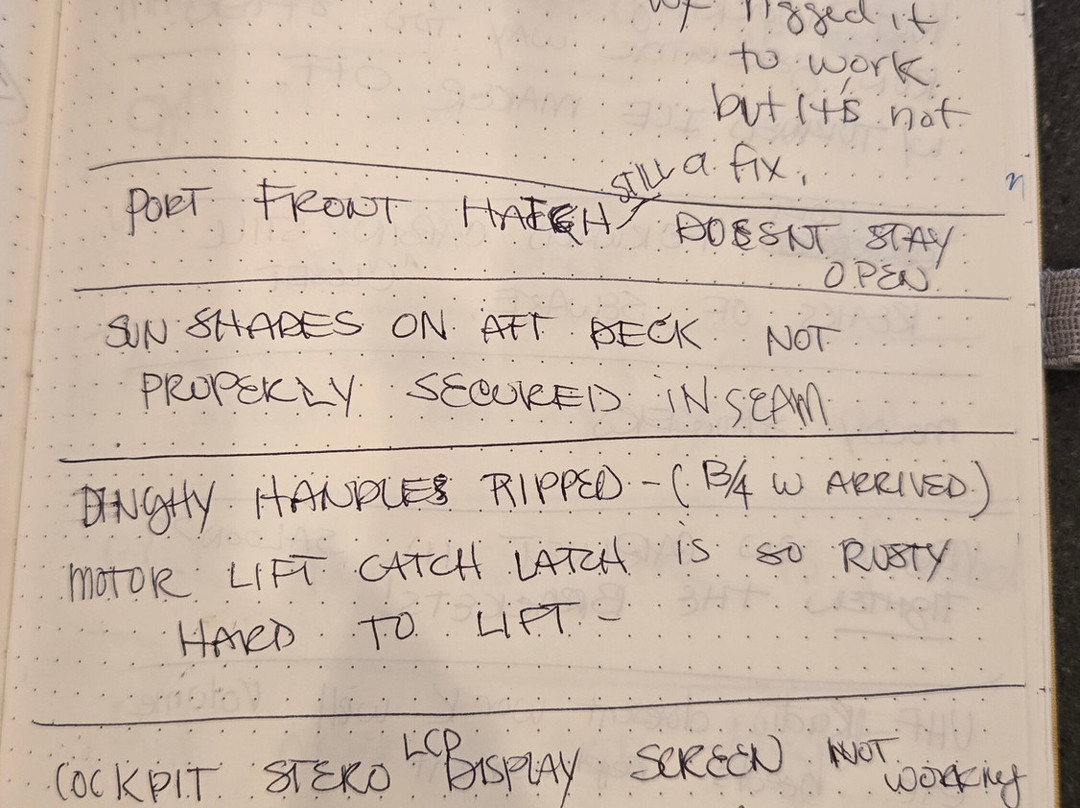 rigged it
to work
but it's not
a fix.
PORT FRONT HATCH STILL DOESNT STAY
OPEN
SUN SHADES ON AFT DECK NOT
PROPERLY SECURED IN SEAM
DINGHY HANDLES RIPPED - (B/4 W ARRIVED)
MOTOR LIFT CATCH LATCH IS SO RUSTY
HARD TO LIFT -
COCKPIT STERO LCD DISPLAY SCREEN NOT WORKING